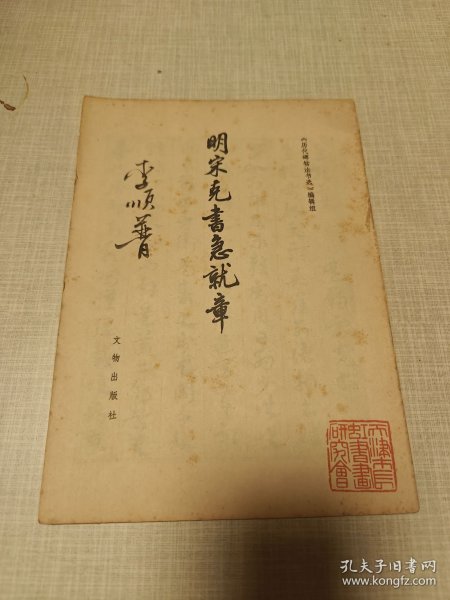 《历代碑帖法书选》编辑组
明宋克书急就章
李顺普
文物出版社
天津市长
虹書畫
研究會
孔夫子旧书网
www.kongfz.com